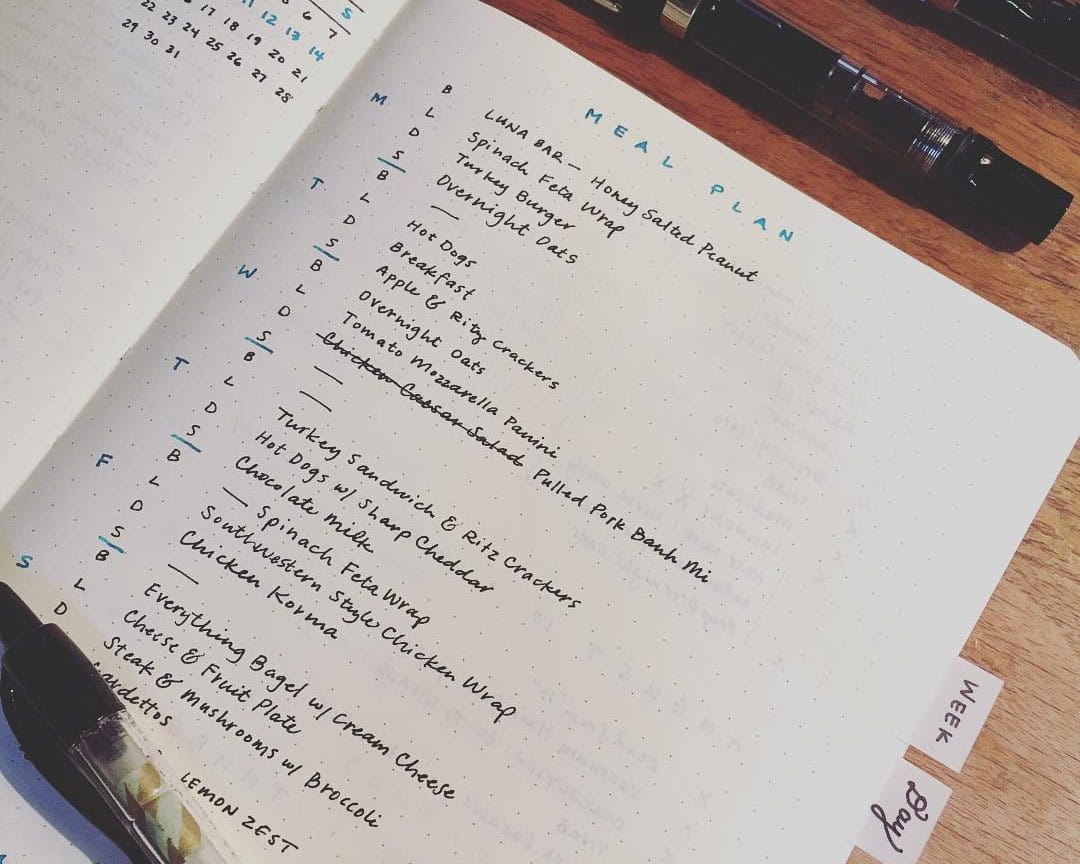 S
6 7
11 12 13 14
17 18 19 20 21
22 23 24 25 26 27 28
29 30 31
MEAL PLAN
M B LUNA BAR — Honey Salted Peanut
L Spinach Feta Wrap
D Turkey Burger
S Overnight Oats
T B —
L Hot Dogs
D Breakfast
S Apple & Ritz Crackers
W B Overnight Oats
L Tomato Mozzarella Panini
D Chicken Caesar Salad Pulled Pork Banh Mi
S —
T B —
L Turkey Sandwich & Ritz Crackers
D Hot Dogs w/ Sharp Cheddar
S Chocolate Milk
F B — Spinach Feta Wrap
L Southwestern Style Chicken Wrap
D Chicken Korma
S —
S B Everything Bagel w/ Cream Cheese
L Cheese & Fruit Plate
D Steak & Mushrooms w/ Broccoli
LEMON ZEST
WEEK
Day